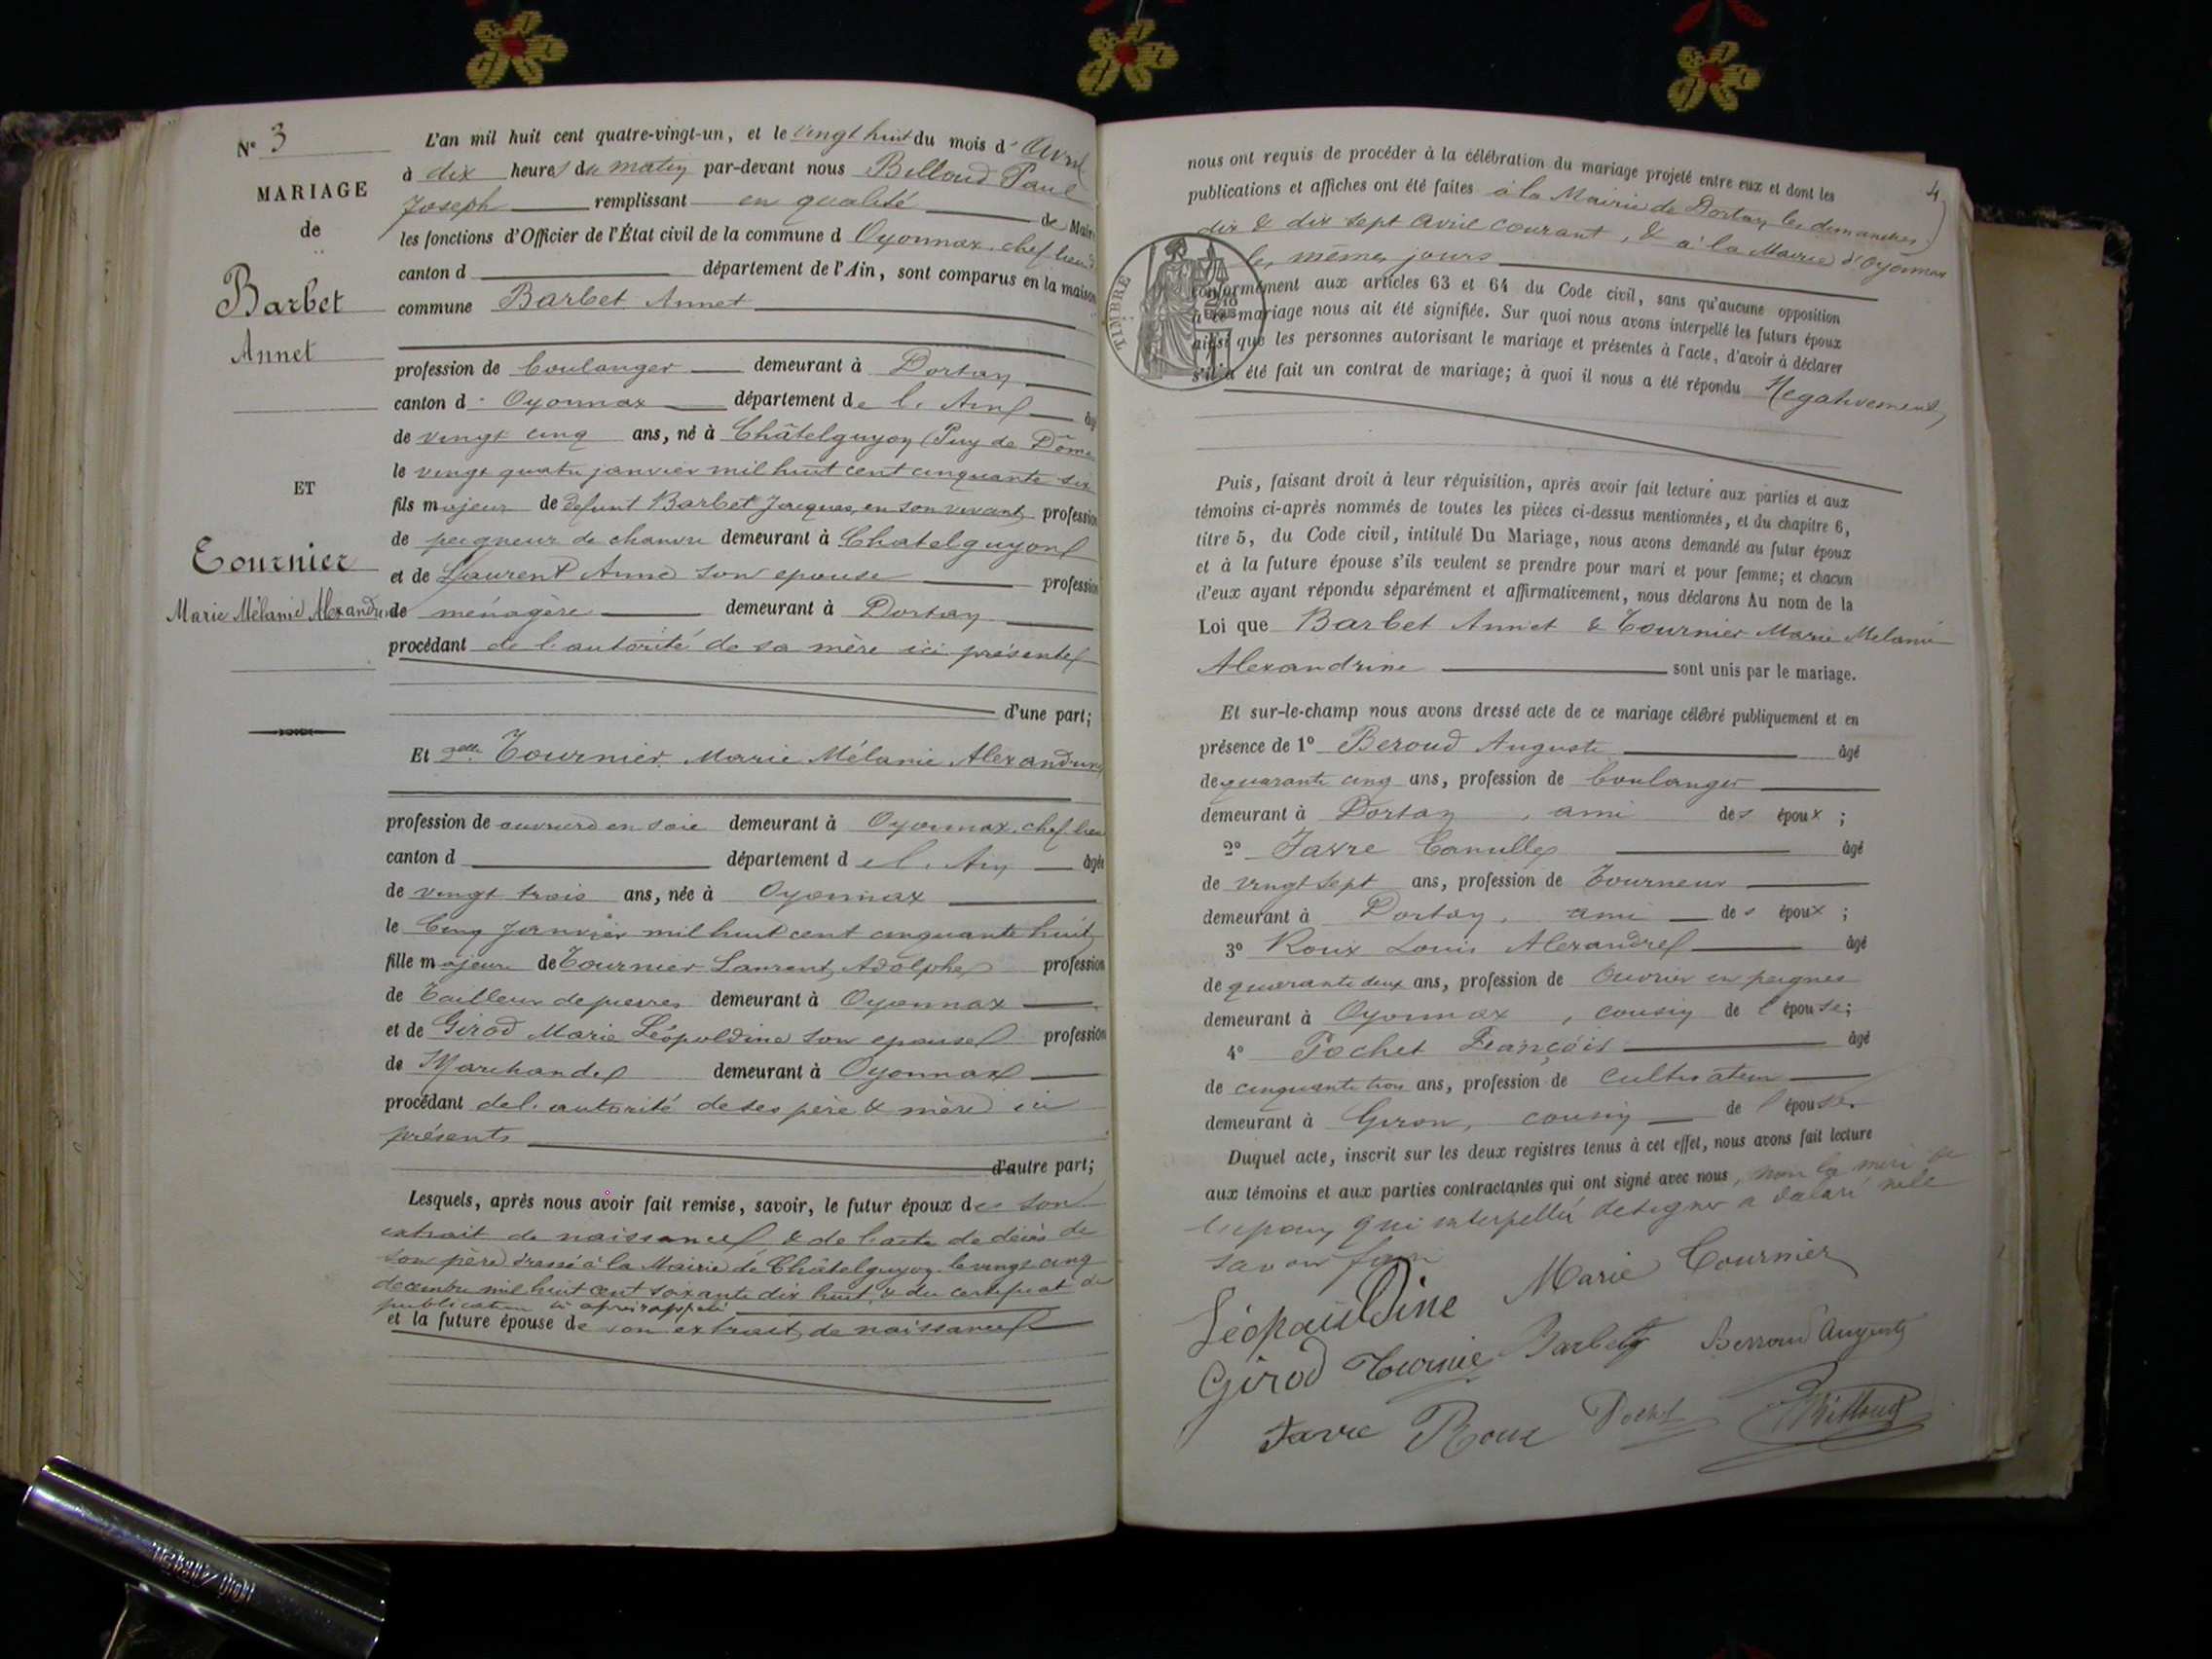 N° 3
MARIAGE
de
Barbet
Annet
ET
Tournier
Marie Mélanie Alexandrine
L'an mil huit cent quatre-vingt-un, et le vingt huit du mois d'Avril
à dix heures du matin par-devant nous Billoud Paul
Joseph remplissant en qualité de Maire
les fonctions d'Officier de l'État civil de la commune d Oyonnax, chef lieu d
canton d département de l'Ain, sont comparus en la maison
commune Barbet Annet
profession de boulanger demeurant à Dortan
canton d' Oyonnax département de l'Ain âgé
de vingt cinq ans, né à Châtelguyon (Puy de Dôme
le vingt quatre janvier mil huit cent cinquante six
fils majeur de défunt Barbet Jacques, en son vivant profession
de peigneur de chanvre demeurant à Chatelguyon
et de Laurent Anne son epouse profession
de ménagère demeurant à Dortan
procédant de l'autorité de sa mère ici présente
d'une part;
Et Delle Tournier Marie Mélanie Alexandrine
profession de ouvrière en soie demeurant à Oyonnax, chef lieu
canton d département de l'Ain âgée
de vingt trois ans, née à Oyonnax
le Cinq Janvier mil huit cent cinquante huit
fille majeure de Tournier Laurent Adolphe profession
de Tailleur de pierres demeurant à Oyonnax
et de Girod Marie Léopoldine son epouse profession
de Marchande demeurant à Oyonnax
procédant de l'autorité de ses père & mère ici
présents
d'autre part;
Lesquels, après nous avoir fait remise, savoir, le futur époux de son
extrait de naissance & de l'acte de décès de
son père dressé à la Mairie de Châtelguyon le vingt cinq
decembre mil huit cent soixante dix huit, & du certificat de
publication ci après rappelé
et la future épouse de son extrait de naissance
4
nous ont requis de procéder à la célébration du mariage projeté entre eux et dont les
publications et affiches ont été faites à la Mairie de Dortan les dimanches
dix & dix sept avril courant, & à la Mairie d'Oyonnax
les mêmes jours
TIMBRE
conformément aux articles 63 et 64 du Code civil, sans qu'aucune opposition
à ce mariage nous ait été signifiée. Sur quoi nous avons interpellé les futurs époux
ainsi que les personnes autorisant le mariage et présentes à l'acte, d'avoir à déclarer
s'il a été fait un contrat de mariage; à quoi il nous a été répondu Négativement
Puis, faisant droit à leur réquisition, après avoir fait lecture aux parties et aux
témoins ci-après nommés de toutes les pièces ci-dessus mentionnées, et du chapitre 6,
titre 5, du Code civil, intitulé Du Mariage, nous avons demandé au futur époux
et à la future épouse s'ils veulent se prendre pour mari et pour femme; et chacun
d'eux ayant répondu séparément et affirmativement, nous déclarons Au nom de la
Loi que Barbet Annet & Tournier Marie Melanie
Alexandrine sont unis par le mariage.
Et sur-le-champ nous avons dressé acte de ce mariage célébré publiquement et en
présence de 1° Beroud Auguste âgé
de quarante cinq ans, profession de boulanger
demeurant à Dortan, ami des époux;
2° Favre Camille âgé
de vingt sept ans, profession de Tourneur
demeurant à Dortan, ami des époux;
3° Roux Louis Alexandre âgé
de quarante deux ans, profession de Ouvrier en peignes
demeurant à Oyonnax, cousin de l'épouse;
4° Pochet François âgé
de cinquante trois ans, profession de cultivateur
demeurant à Giron, cousin de l'épouse.
Duquel acte, inscrit sur les deux registres tenus à cet effet, nous avons fait lecture
aux témoins et aux parties contractantes qui ont signé avec nous, non la mère de
l'époux qui interpellée de signer a déclaré ne le
savoir faire
Marie Tournier
Léopauldine
Girod Tournier Barbet Berroud Auguste
Favre Roux Pochet Billoud